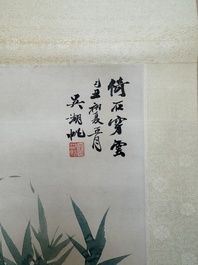 倚石穿雲
己丑初夏五月
吳湖帆